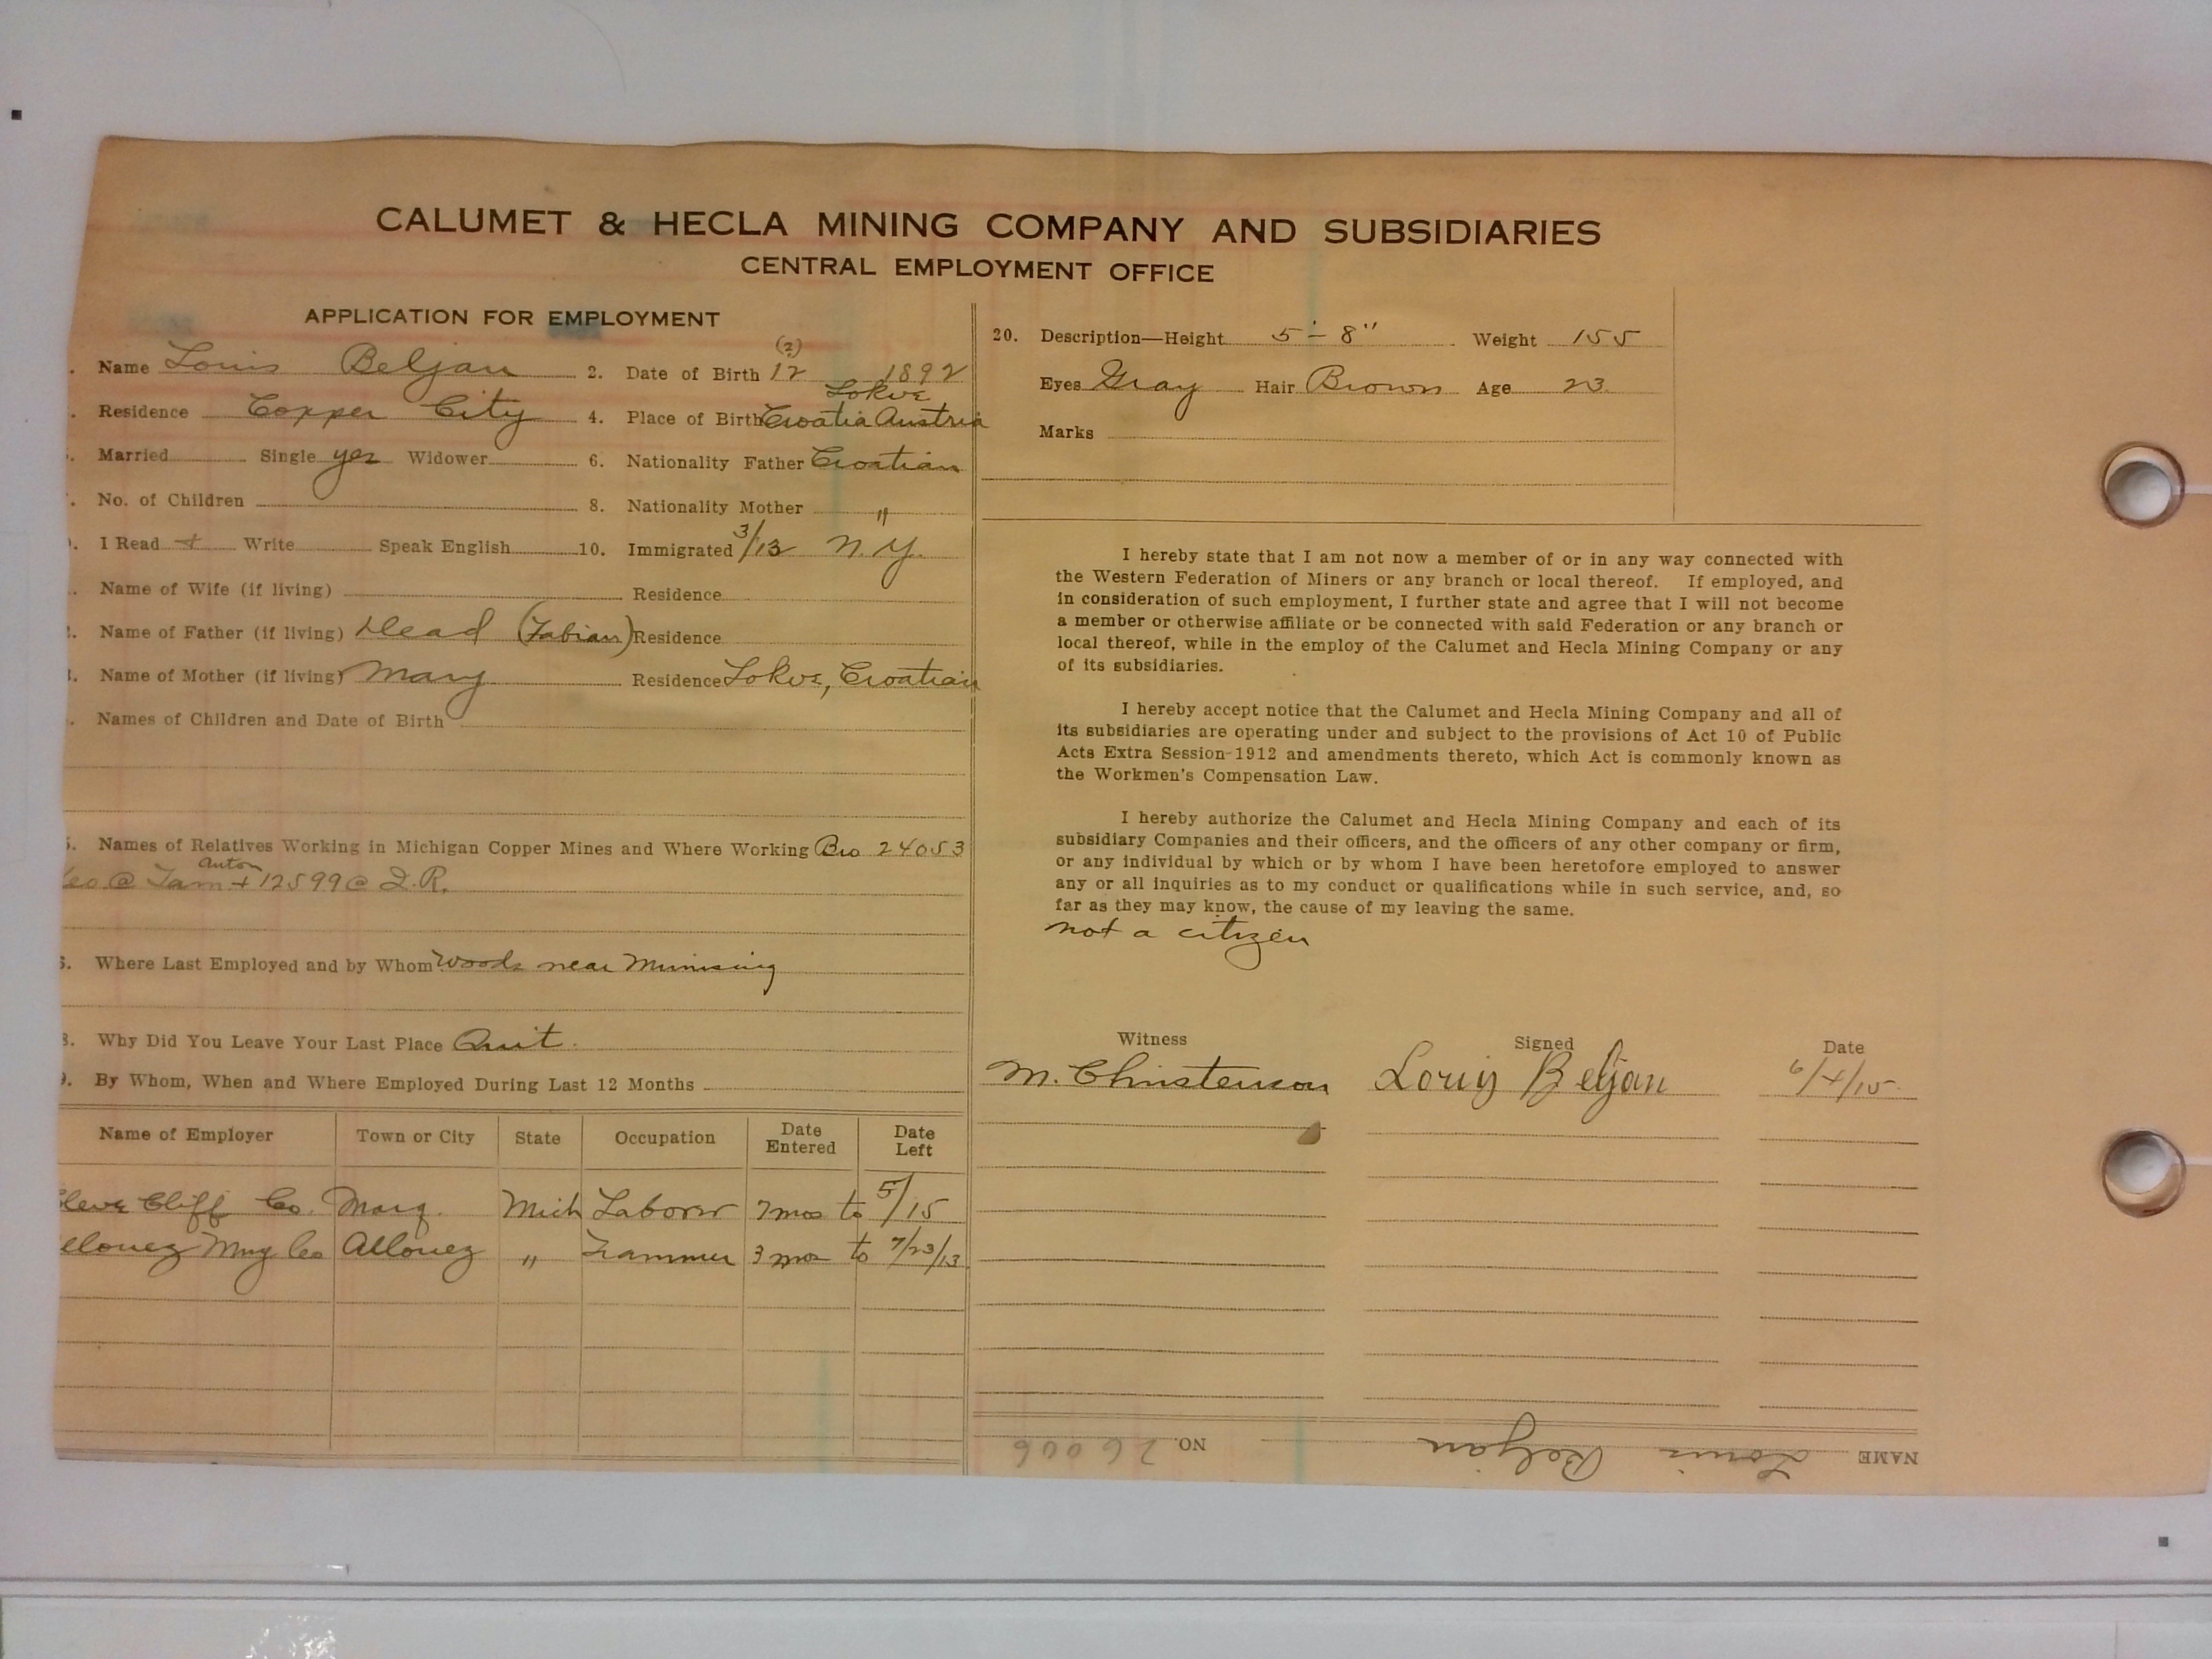 CALUMET & HECLA MINING COMPANY AND SUBSIDIARIES
CENTRAL EMPLOYMENT OFFICE
APPLICATION FOR EMPLOYMENT
(2)
. Name Louis Beljan 2. Date of Birth 12 1892
Lokve
. Residence Copper City 4. Place of Birth Croatia Austria
. Married Single yes Widower 6. Nationality Father Croatian
. No. of Children 8. Nationality Mother "
. I Read + Write Speak English 10. Immigrated 3/13 N.Y.
. Name of Wife (if living) Residence
. Name of Father (if living) Dead (Fabian) Residence
. Name of Mother (if living) Mary Residence Lokve, Croatian
. Names of Children and Date of Birth
. Names of Relatives Working in Michigan Copper Mines and Where Working Bro 24053
Anton
eo @ Tam + 12599 @ I.R.
. Where Last Employed and by Whom Woods near Munising
8. Why Did You Leave Your Last Place Quit.
9. By Whom, When and Where Employed During Last 12 Months
Name of Employer Town or City State Occupation Date Entered Date Left
leve Cliff Co. Marq. Mich Laborer 7 mos to 5/15
llouez Mng Co Allouez " Trammer 3 mos to 7/23/13
20. Description—Height 5'-8" Weight 155
Eyes Gray Hair Brown Age 23
Marks
I hereby state that I am not now a member of or in any way connected with
the Western Federation of Miners or any branch or local thereof. If employed, and
in consideration of such employment, I further state and agree that I will not become
a member or otherwise affiliate or be connected with said Federation or any branch or
local thereof, while in the employ of the Calumet and Hecla Mining Company or any
of its subsidiaries.
I hereby accept notice that the Calumet and Hecla Mining Company and all of
its subsidiaries are operating under and subject to the provisions of Act 10 of Public
Acts Extra Session-1912 and amendments thereto, which Act is commonly known as
the Workmen's Compensation Law.
I hereby authorize the Calumet and Hecla Mining Company and each of its
subsidiary Companies and their officers, and the officers of any other company or firm,
or any individual by which or by whom I have been heretofore employed to answer
any or all inquiries as to my conduct or qualifications while in such service, and, so
far as they may know, the cause of my leaving the same.
not a citizen
Witness Signed Date
M. Christenson Louis Beljan 6/4/15
NAME Louis Beljan NO. 26006